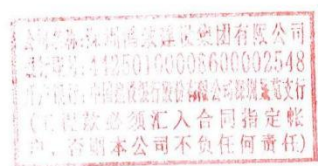 公司名称:深圳 建设集团有限公司
银行账号:44250100008600002548
开户银行:中国建设银行股份有限公司深圳 支行
(工程款必须汇入合同指定帐
户,否则本公司不负任何责任)